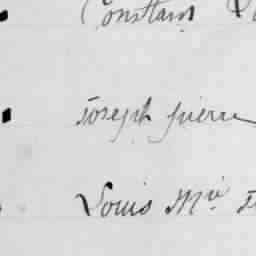 Constant
Joseph pierre
Louis Mie